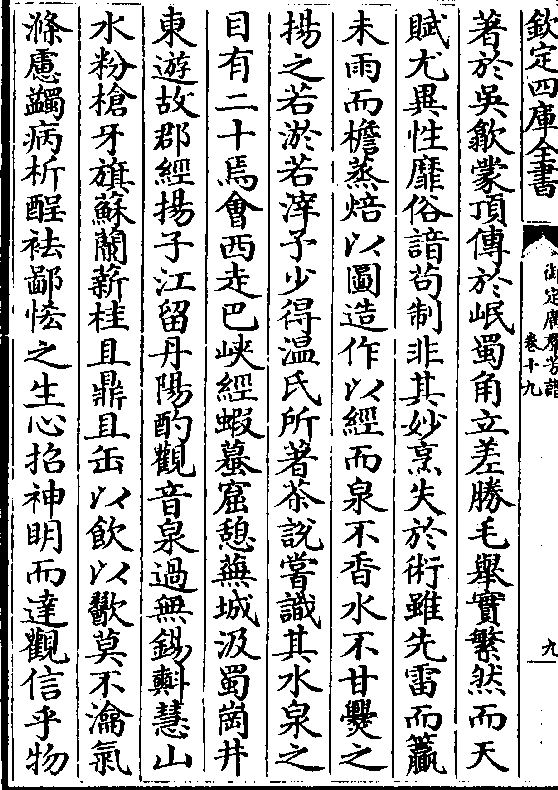 欽定四庫全書
御定廣羣芳譜
卷十九
九
著於吳歙蒙頂傳於岷蜀角立差勝毛舉實繁然而天
賦尤異性靡俗諳苟制非其妙烹失於術雖先雷而籯
未雨而檐蒸焙以圖造作以經而泉不香水不甘爨之
揚之若淤若滓予少得温氏所著茶說嘗識其水泉之
目有二十焉會西走巴峽經蝦蟇窟憩蕪城汲蜀崗井
東遊故郡經揚子江留丹陽酌觀音泉過無錫㪺慧山
水粉槍牙旗蘇蘭薪桂且鼎且缶以飲以歠莫不瀹氣
滌慮蠲病析酲袪鄙恡之生心招神明而達觀信乎物